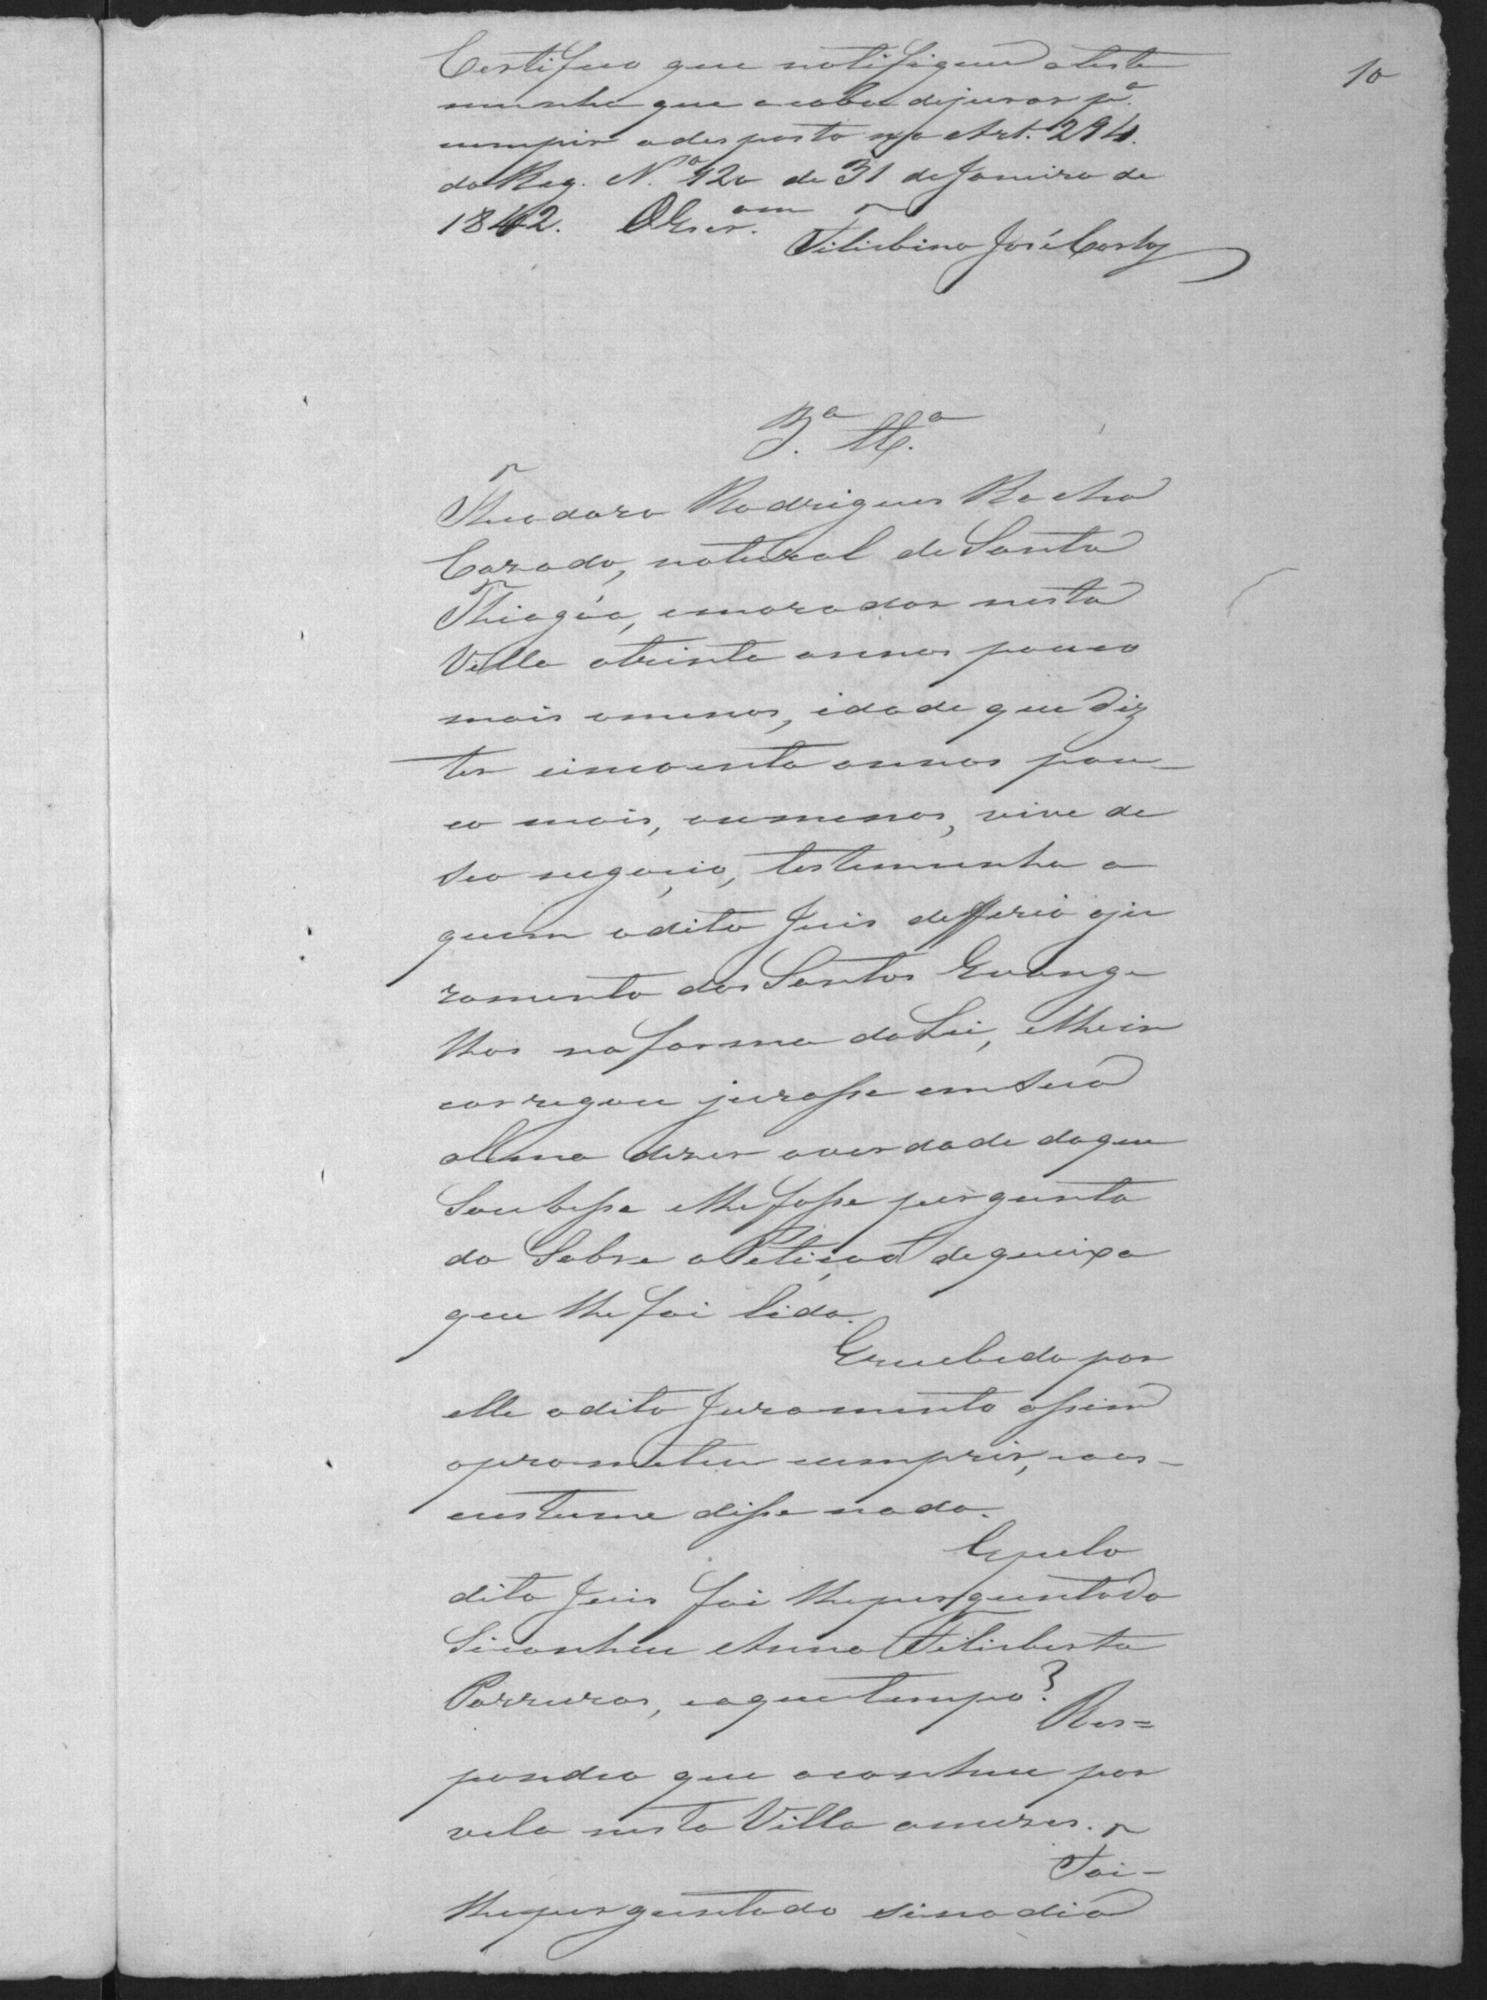 10
Certifico que notifiquei a teste
munha que acaba dejurar p.ª
cumpir odesposto no Art. 294.
do Reg. N.º 120 de 31 de Janeiro de
1842. OEscr.am
Filisbino José
3.ª Tt.ª
Theodoro Rodrigues Rocha
Cazado, natural de Santa
Thiágo, emorador nesta
Villa atrinta annos pouco
mais omenos, idade que diz
ter cincoenta annos pou-
co mais, oumenos, vive de
seo negocio, testemunha a
quem odito Juis defferio oju
ramento dos Santos Evange
lhos na forma da Lei, elhe in
carregou jurasse em sua
alma dizer averdade doque
Soubesse elhe fosse pergunta
do Sobre a Petiçaõ dequeixa
que lhe foi lida.
Erecebido por
elle odito Juramento assim
oprometeu cumprir, eaos
custume disse nada.
Epelo
dito Juis foi lheperguntado
Siconhece Anna Felisberta
Parruras, eaquetempo?
Res=
pondeo que aconhece por
vela nesta Villa amezes.
Foi-
lheperguntado sinodia